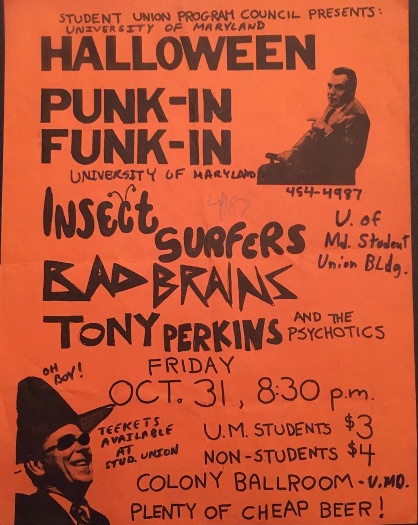 STUDENT UNION PROGRAM COUNCIL PRESENTS:
UNIVERSITY OF MARYLAND
HALLOWEEN
PUNK-IN
FUNK-IN
UNIVERSITY OF MARYLAND
454-4987
4987
INSECT
SURFERS
U. of
Md. Student
Union BLdg.
BAD BRAINS
TONY PERKINS AND THE
PSYCHOTICS
FRIDAY
OH
BOY!
OCT. 31, 8:30 p.m.
TEEKETS
AVAILABLE
AT
STUD. UNION
U.M. STUDENTS $3
NON-STUDENTS $4
COLONY BALLROOM - U.MD.
PLENTY OF CHEAP BEER!